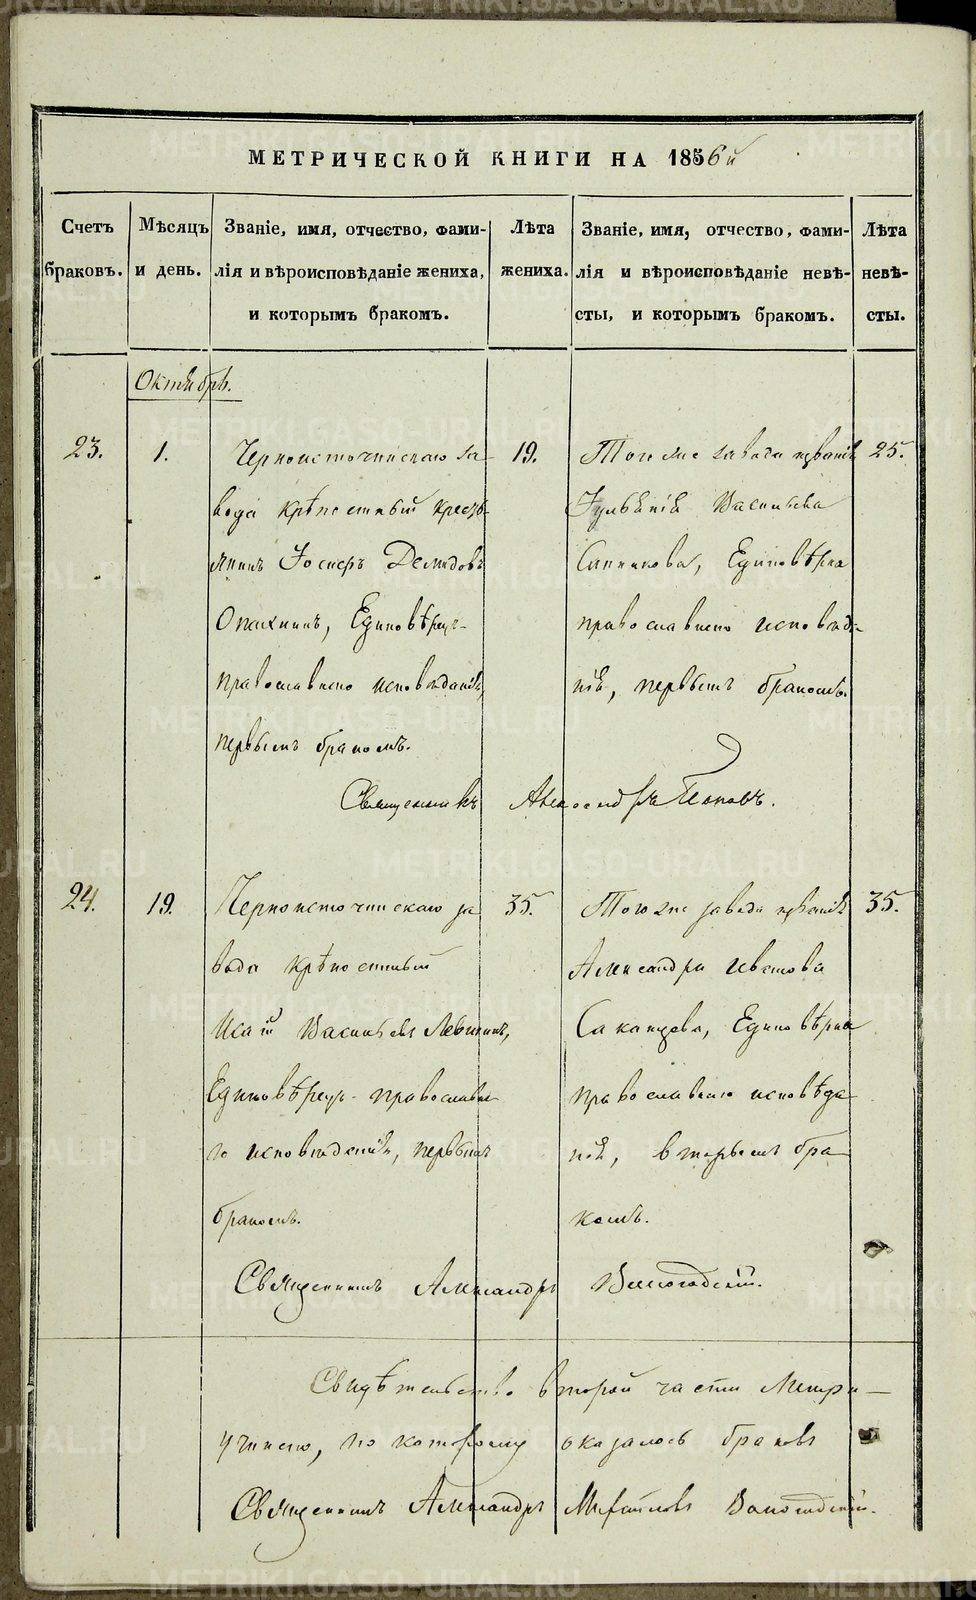 МЕТРИЧЕСКОЙ КНИГИ НА 1856й
Счетъ браковъ.
Мѣсяцъ и день.
Званіе, имя, отчество, фами-
лія и вѣроисповѣданіе жениха,
и которымъ бракомъ.
Лѣта жениха.
Званіе, имя, отчество, фами-
лія и вѣроисповѣданіе невѣ-
сты, и которымъ бракомъ.
Лѣта невѣ-
сты.
Октябрь.
23.
1.
Черноисточинскаго за-
вода крѣпостный кресть-
янинъ Іосифъ Демидовъ
Опахнинъ, Единовѣрец-
православнаго исповѣданія,
первымъ бракомъ.
19.
Того же завода
Іуліанія Васильева
Единовѣрка
православнаго исповѣда-
нія, первымъ бракомъ.
25.
Священникъ Александръ Поповъ.
24.
19.
Черноисточинскаго за
вода крѣпостный
Исай Васильевъ Левшинъ,
Единовѣрецъ православна-
го исповѣданія, первымъ
бракомъ.
35.
Того же завода
Александра Иванова
Саканцева, Единовѣрка
православнаго исповѣда-
нія, вторымъ бра
комъ.
35.
Священникъ Александръ Вологодскій.
Свидѣтельство второй части Метри-
по которому оказалось браковъ
Священникъ Александръ Михайловъ Вологодскій.